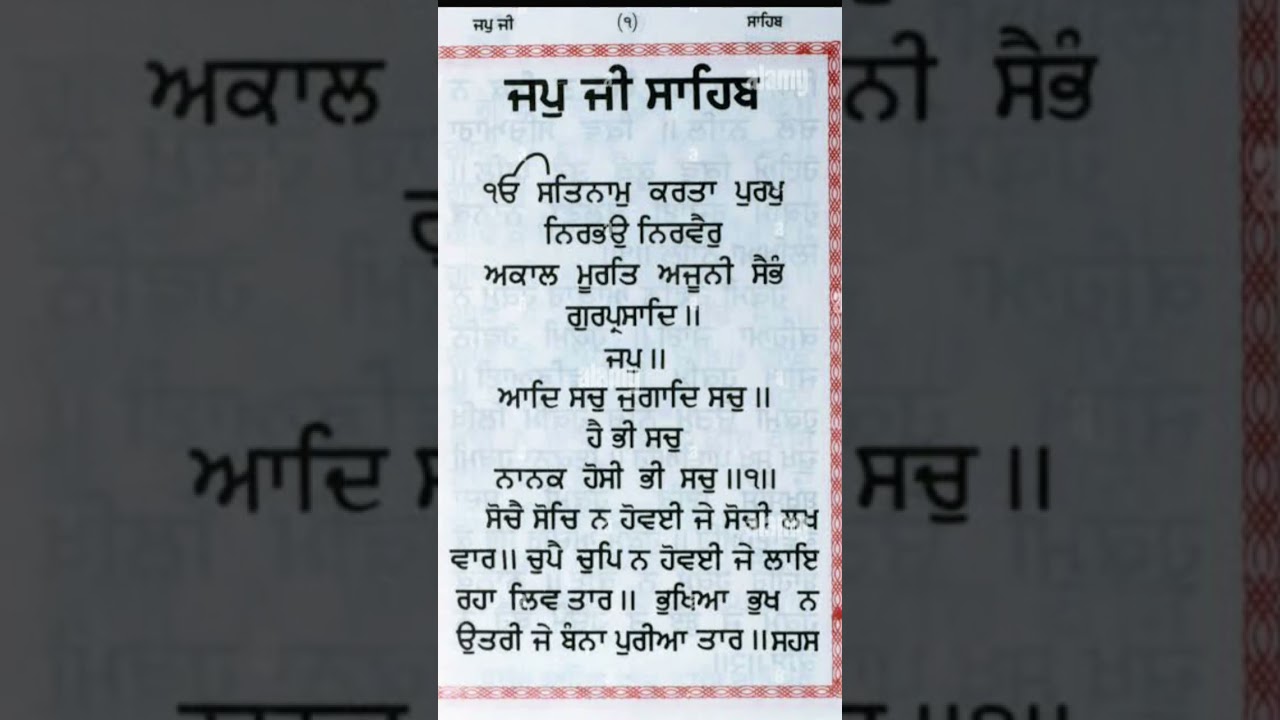 ਜਪੁ ਜੀ (੧) ਸਾਹਿਬ
ਜਪੁ ਜੀ ਸਾਹਿਬ
੧ਓ ਸਤਿਨਾਮੁ ਕਰਤਾ ਪੁਰਖੁ
ਨਿਰਭਉ ਨਿਰਵੈਰੁ
ਅਕਾਲ ਮੂਰਤਿ ਅਜੂਨੀ ਸੈਭੰ
ਗੁਰਪ੍ਰਸਾਦਿ॥
ਜਪੁ॥
ਆਦਿ ਸਚੁ ਜੁਗਾਦਿ ਸਚੁ॥
ਹੈ ਭੀ ਸਚੁ
ਨਾਨਕ ਹੋਸੀ ਭੀ ਸਚੁ॥੧॥
ਸੋਚੈ ਸੋਚਿ ਨ ਹੋਵਈ ਜੇ ਸੋਚੀ ਲਖ
ਵਾਰ॥ ਚੁਪੈ ਚੁਪਿ ਨ ਹੋਵਈ ਜੇ ਲਾਇ
ਰਹਾ ਲਿਵ ਤਾਰ॥ ਭੁਖਿਆ ਭੁਖ ਨ
ਉਤਰੀ ਜੇ ਬੰਨਾ ਪੁਰੀਆ ਤਾਰ॥ਸਹਸ